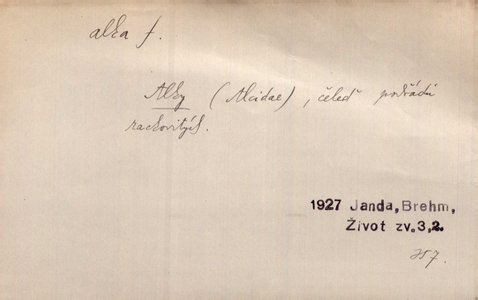 alka f.
Alky (Alcidae), čeleď podřádu
rackovitých.
1927 Janda, Brehm,
Život zv. 3,2.
757.